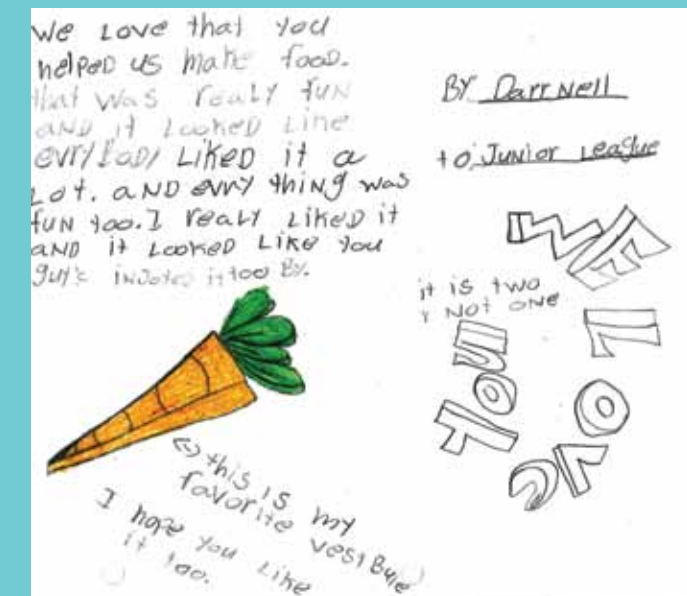 We Love that you
helped us make food.
that was realy fun
and it looked like
evrybody LIKED it a
Lot. and evry thing was
fun too. I realy Liked it
and it Looked Like you
guy's injoted it too By.
BY Darrnell
to: Junior League
WE
it is two
not one
L
O
V
e
You
this is my
favorite vestBule
I hope you Like
it too.